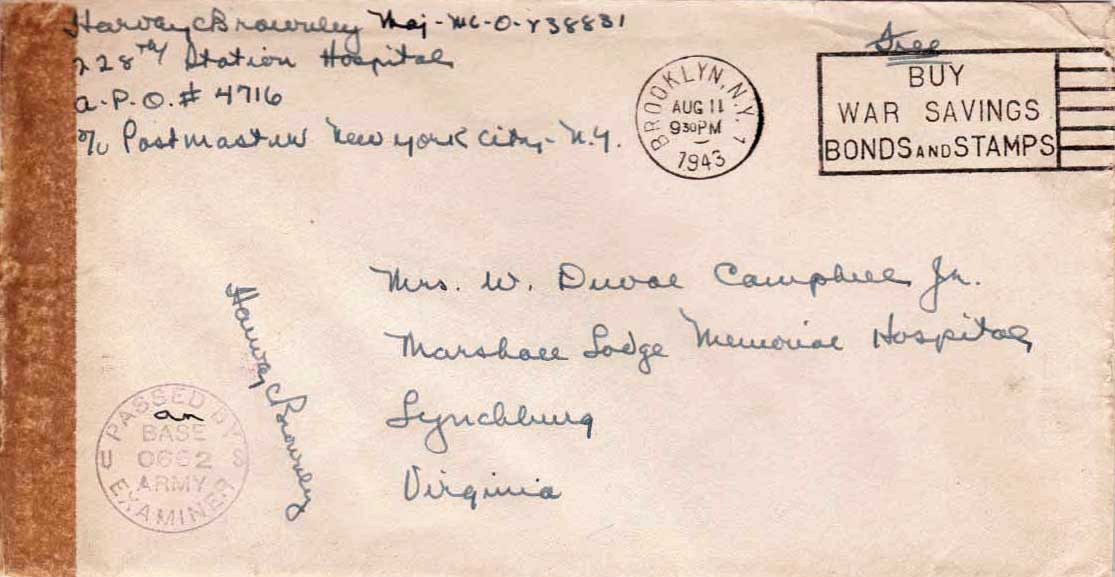 Harvey C Brownley Maj-MC-O-438831
228th Station Hospital
A.P.O. # 4716
c/o Postmaster New York City - N.Y.
Free
BROOKLYN, N.Y. 1
AUG 11
930PM
1943
BUY
WAR SAVINGS
BONDS AND STAMPS
Mrs. W. Duval Campbell Jr.
Marshall Lodge Memorial Hospital
Lynchburg
Virginia
Harvey C Brownley
PASSED BY
an
BASE
U 0662 S
ARMY
EXAMINER